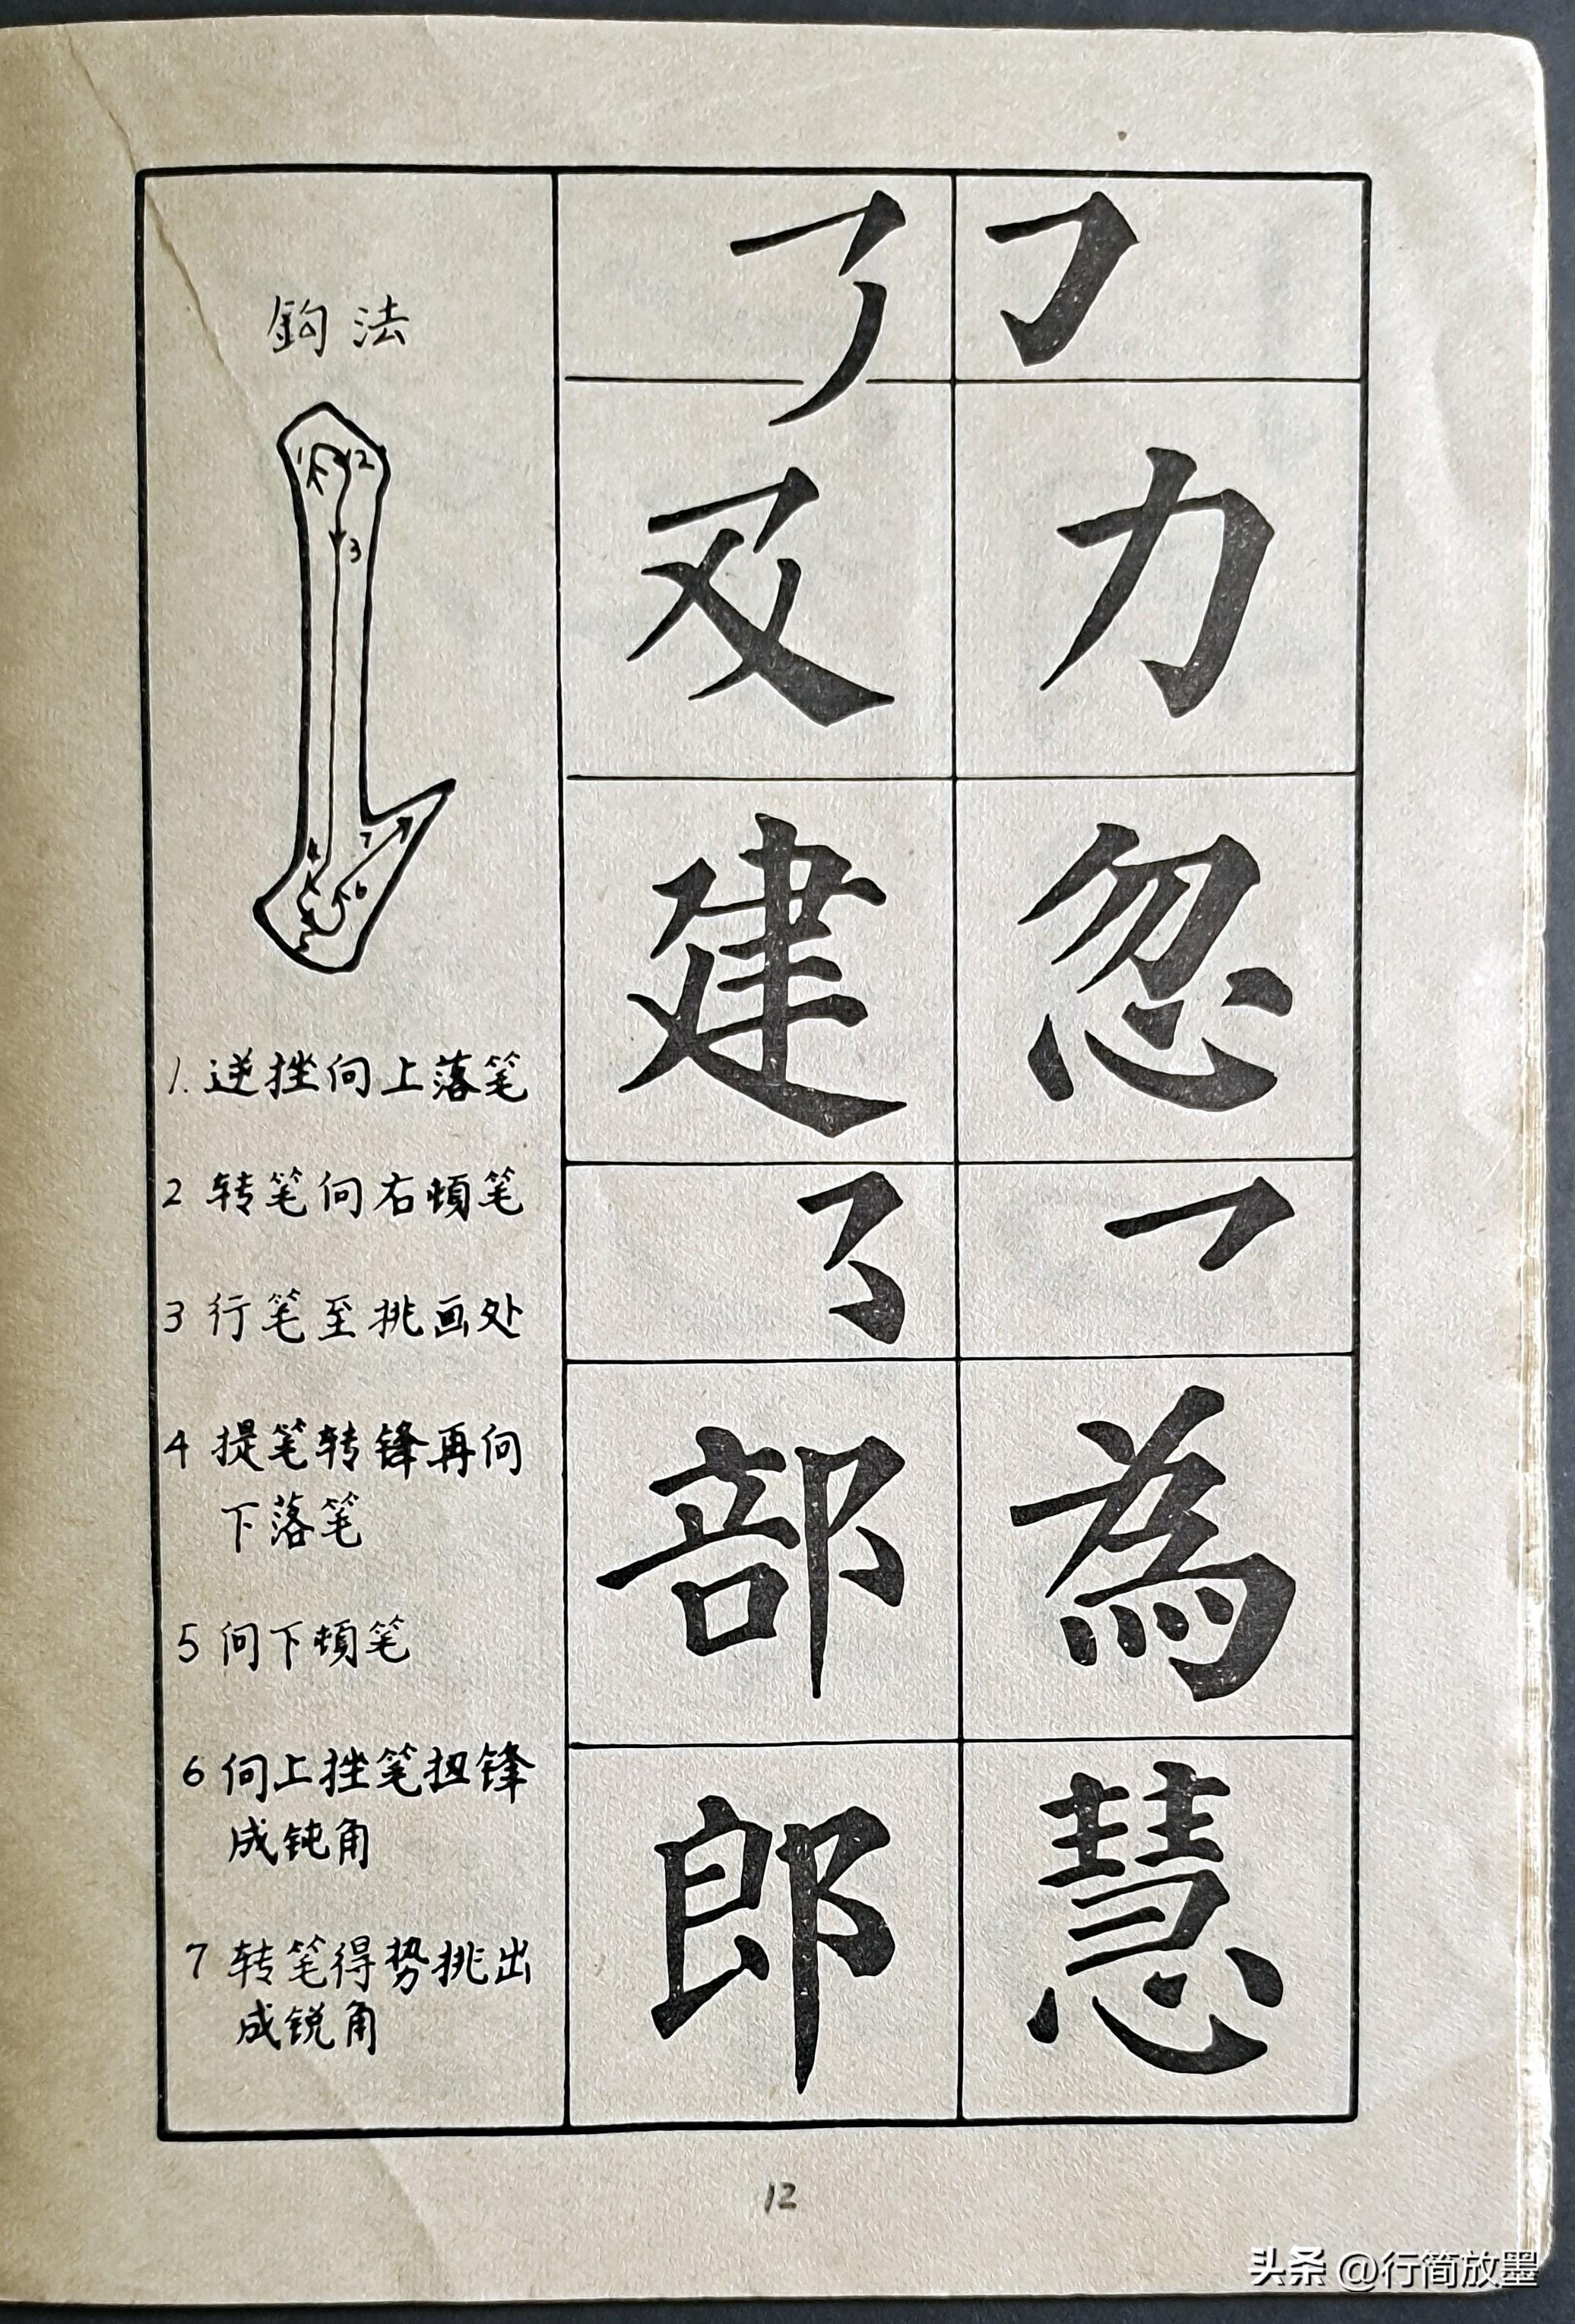 鈎法
1. 逆挫向上落笔
2 转笔向右頓笔
3 行笔至挑画处
4 提笔转锋再向
下落笔
5 向下頓笔
6 向上挫笔扭锋
成钝角
7 转笔得势挑出
成锐角
1
2
3
4
6
7
力
忽
為
慧
及
建
部
郎
12
头条 @行简放墨